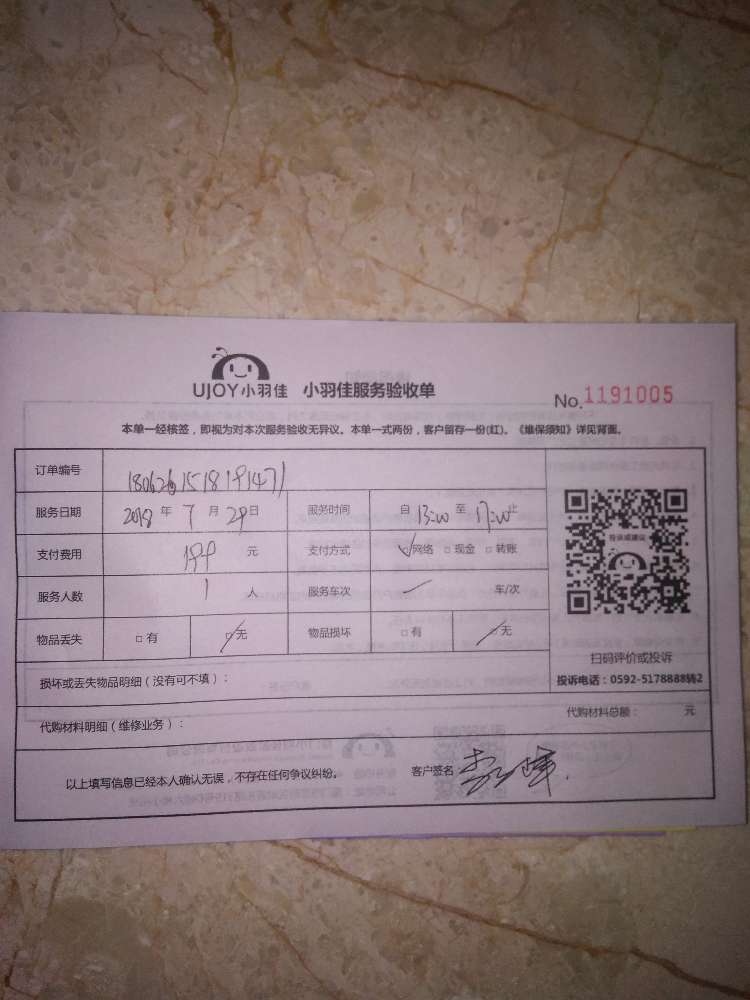 UJOY小羽佳 小羽佳服务验收单
No.1191005
本单一经核签，即视为对本次服务验收无异议。本单一式两份，客户留存一份(红)。《维保须知》详见背面。
订单编号
服务日期 2018 年 7 月 29 日 服务时间 自 13:00 至 17:00 止
支付费用 元 支付方式 ☑网络 □现金 □转账
服务人数 1 人 服务车次 车/次
物品丢失 □有 ☑无 物品损坏 □有 ☑无
投诉或建议
扫码评价或投诉
投诉电话：0592-5178888转2
损坏或丢失物品明细（没有可不填）：
代购材料明细（维修业务）： 代购材料总额： 元
以上填写信息已经本人确认无误，不存在任何争议纠纷。 客户签名